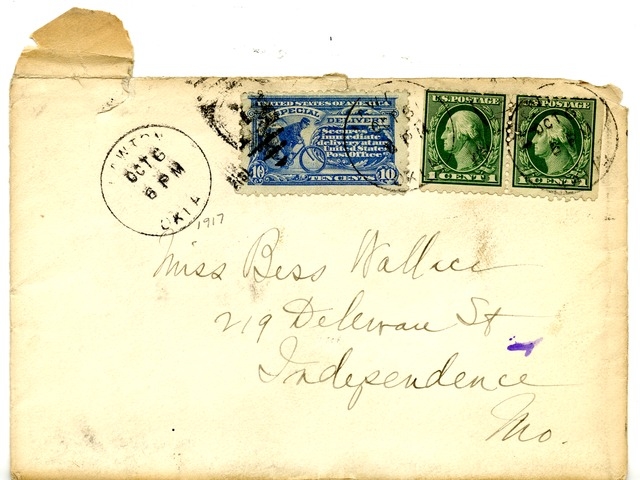 LAWTON
OCT 6
6 PM
OKLA
1917
UNITED STATES OF AMERICA
SPECIAL DELIVERY
Secures
immediate
delivery at any
United States
Post Office
10 TEN CENTS 10
U.S. POSTAGE
1 CENT 1
U.S. POSTAGE
1 CENT 1
OCT
Miss Bess Wallace
219 Deleware St
Independence
Mo.